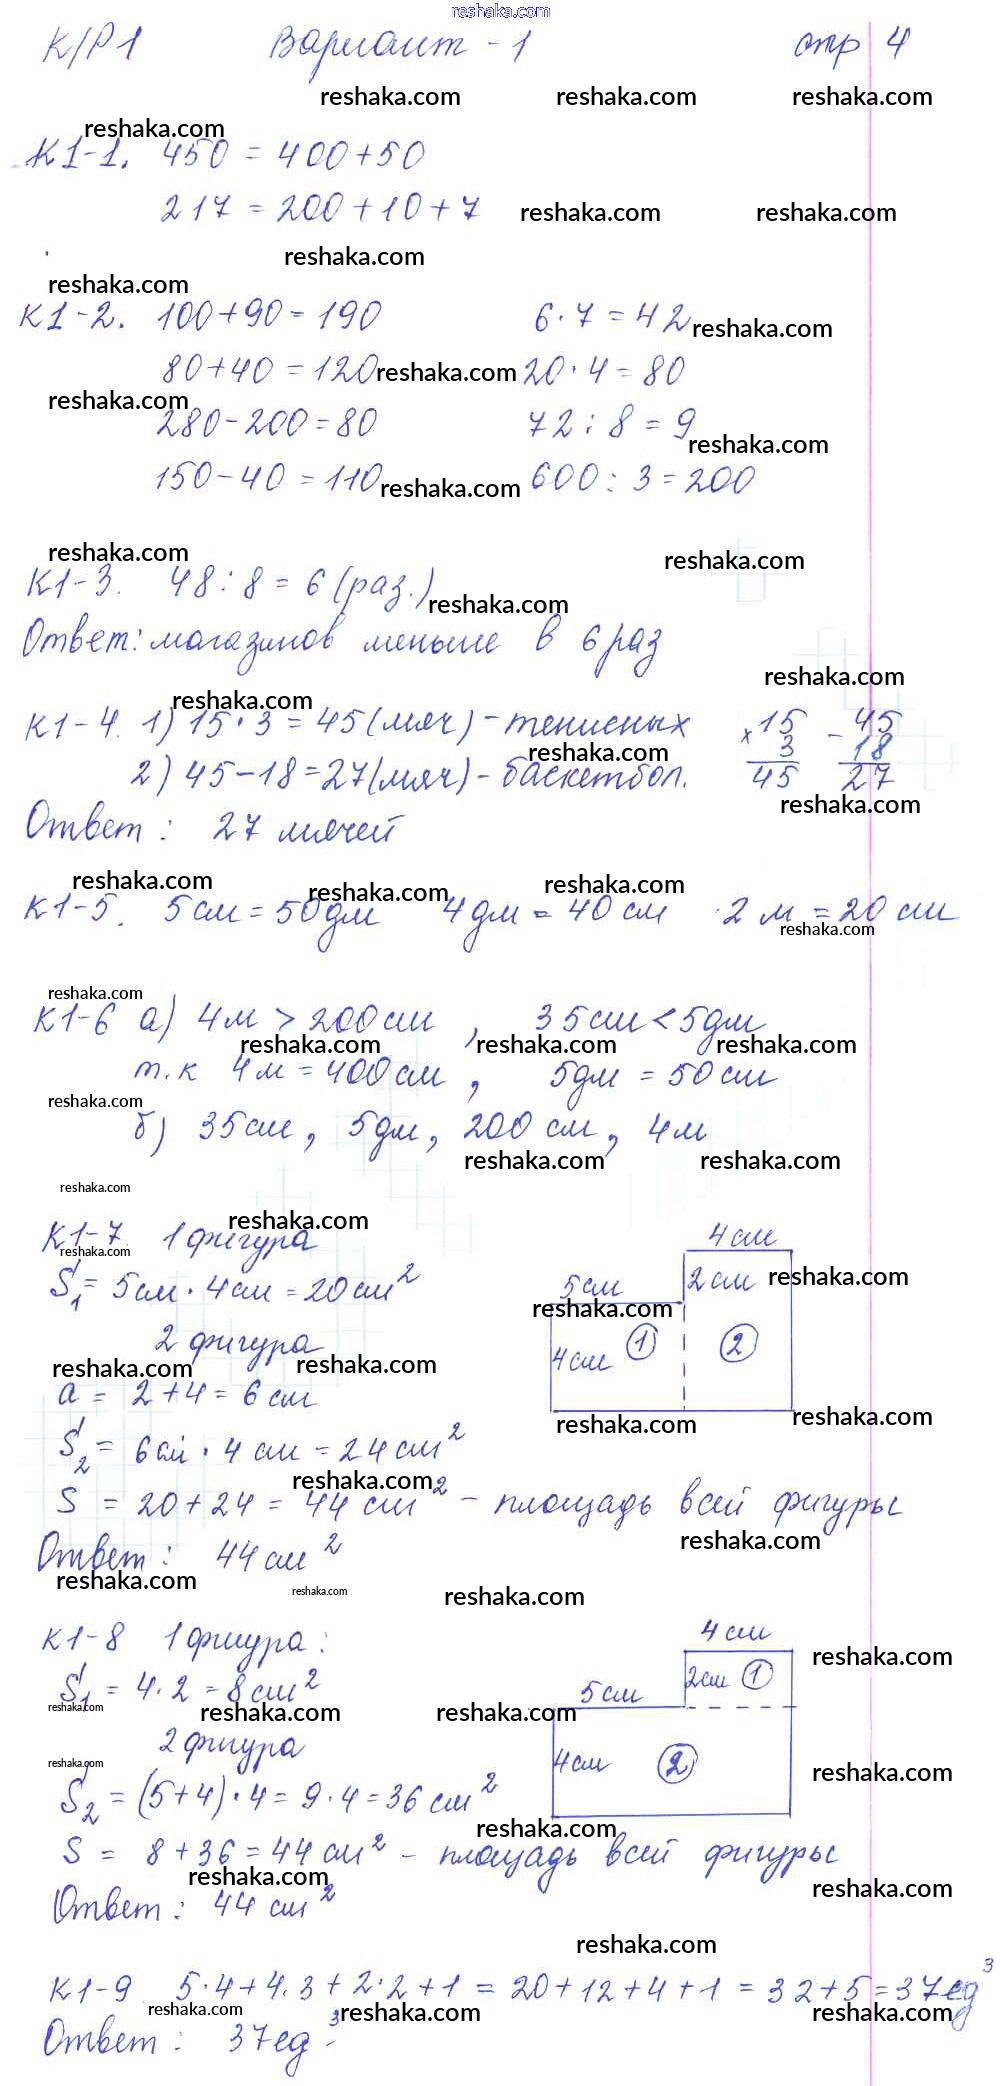 reshaka.com
К/Р 1 Вариант - 1 стр 4
reshaka.com reshaka.com reshaka.com
reshaka.com
К1-1. 450 = 400 + 50
217 = 200 + 10 + 7 reshaka.com reshaka.com
reshaka.com
reshaka.com
К1-2. 100 + 90 = 190 6 · 7 = 42 reshaka.com
80 + 40 = 120 reshaka.com 20 · 4 = 80
reshaka.com
280 - 200 = 80 72 : 8 = 9
reshaka.com
150 - 40 = 110 reshaka.com 600 : 3 = 200
reshaka.com reshaka.com
К1-3. 48 : 8 = 6 (раз.) reshaka.com
Ответ: магазинов меньше в 6 раз
reshaka.com
reshaka.com
К1-4. 1) 15 · 3 = 45 (мяч) - тенисных × 15 - 45
reshaka.com 3 18
2) 45 - 18 = 27 (мяч) - баскетбол. 45 27
reshaka.com
Ответ: 27 мячей
reshaka.com reshaka.com reshaka.com
К1-5. 5 см = 50 дм 4 дм = 40 см 2 м = 20 см
reshaka.com
reshaka.com
К1-6 а) 4 м > 200 см , 35 см < 5 дм
reshaka.com reshaka.com reshaka.com
т.к 4 м = 400 см , 5 дм = 50 см
reshaka.com
б) 35 см, 5 дм, 200 см, 4 м
reshaka.com reshaka.com
reshaka.com
reshaka.com
К1-7 1 фигура 4 см
reshaka.com
S₁ = 5 см · 4 см = 20 см² 5 см 2 см reshaka.com
reshaka.com
2 фигура 4 см 1 2
reshaka.com reshaka.com
a = 2 + 4 = 6 см
reshaka.com reshaka.com
S₂ = 6 см · 4 см = 24 см²
reshaka.com
S = 20 + 24 = 44 см² - площадь всей фигуры
reshaka.com
Ответ: 44 см²
reshaka.com reshaka.com reshaka.com
К1-8 1 фигура: 4 см
reshaka.com
S₁ = 4 · 2 = 8 см² 5 см 2 см 1
reshaka.com reshaka.com reshaka.com
2 фигура
reshaka.com 4 см 2 reshaka.com
S₂ = (5 + 4) · 4 = 9 · 4 = 36 см²
reshaka.com
S = 8 + 36 = 44 см² - площадь всей фигуры
reshaka.com reshaka.com
Ответ: 44 см²
reshaka.com
К1-9 5 · 4 + 4 · 3 + 2 · 2 + 1 = 20 + 12 + 4 + 1 = 32 + 5 = 37 ед³
reshaka.com reshaka.com reshaka.com
Ответ: 37 ед³